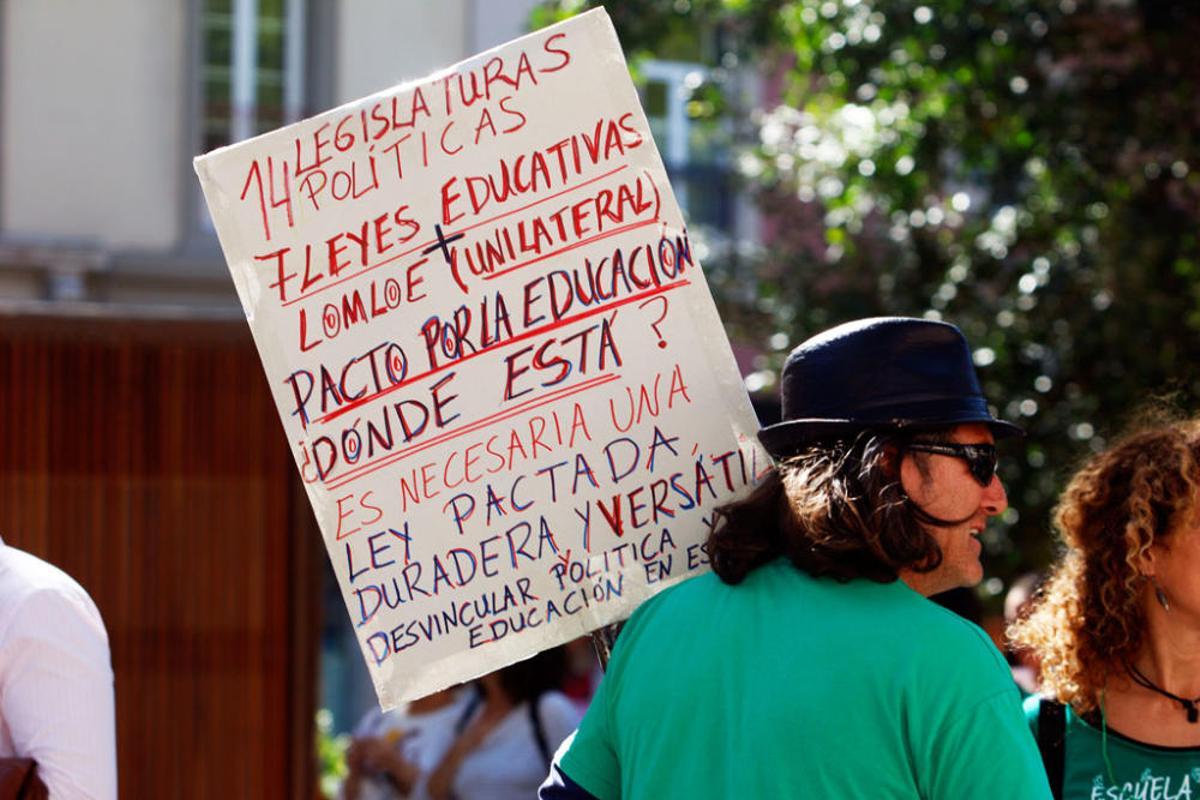 14 LEGISLATURAS
POLÍTICAS
7 LEYES EDUCATIVAS
+
LOMLOE (UNILATERAL)
PACTO POR LA EDUCACIÓN
¿DÓNDE ESTÁ?
ES NECESARIA UNA
LEY PACTADA,
DURADERA Y VERSÁTIL
DESVINCULAR POLITICA Y
EDUCACIÓN EN ES
ESCUELA